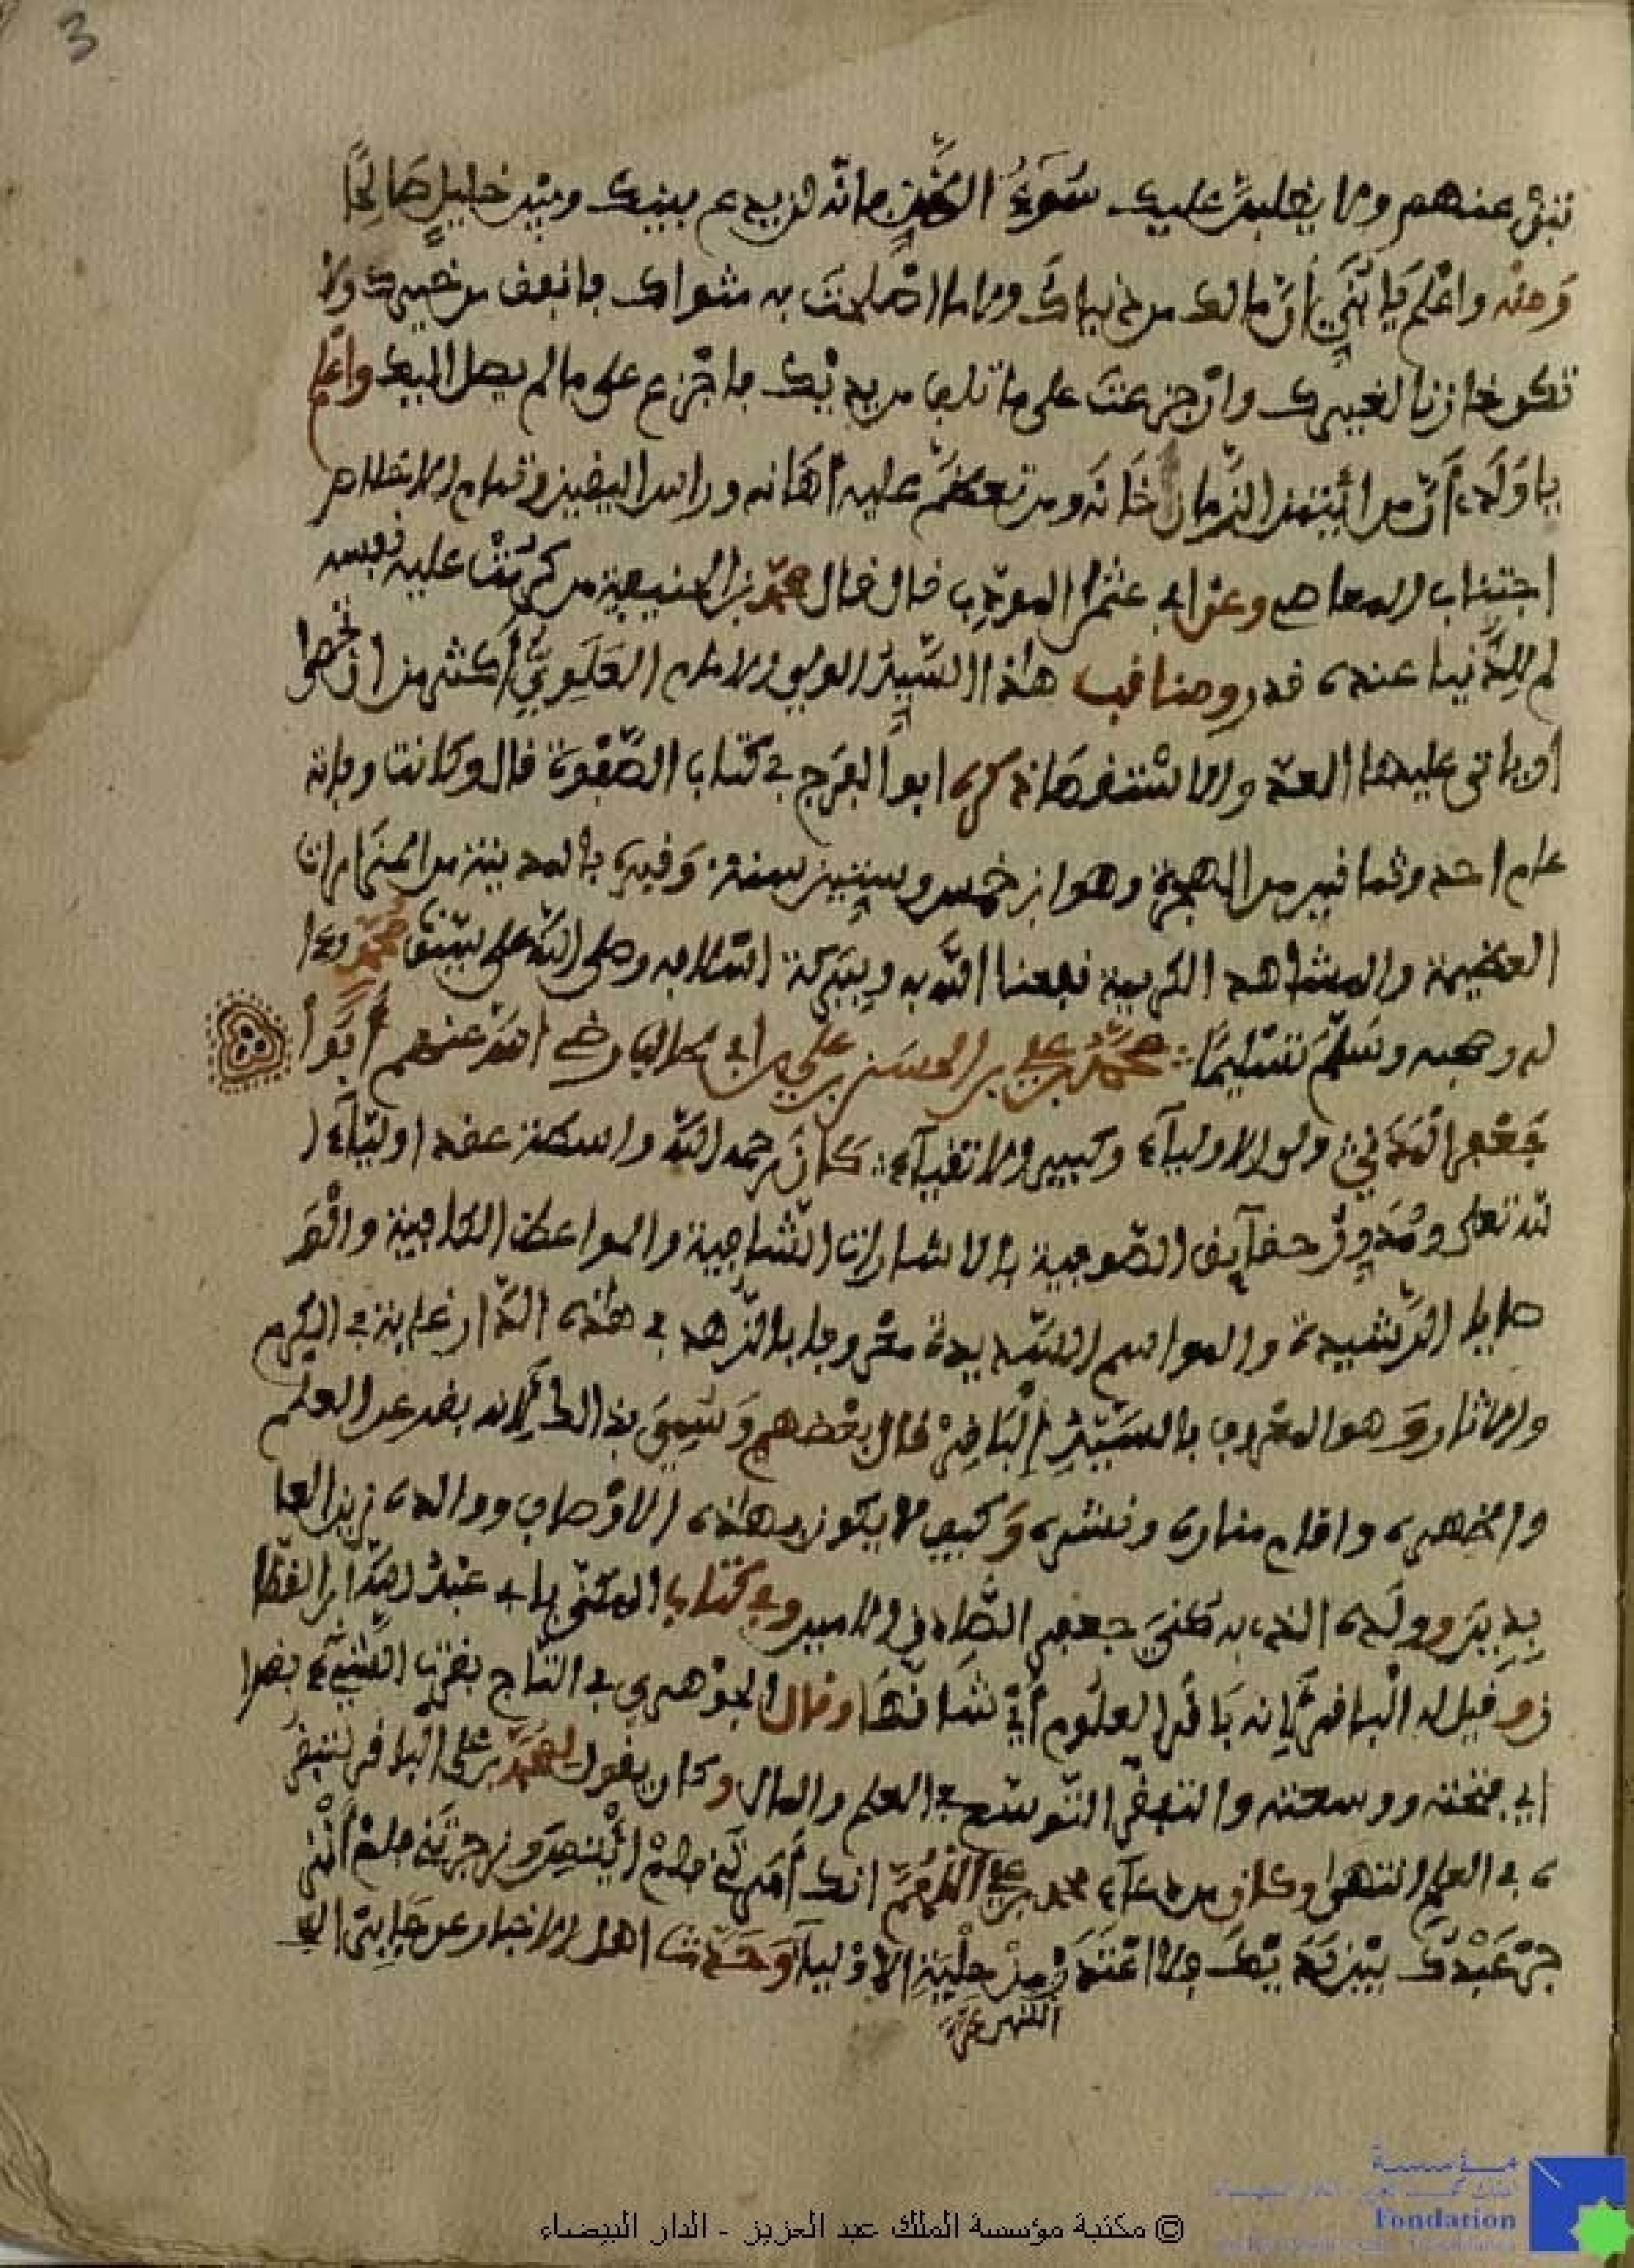 3
عنهم ولا يغلبن عليك سُوءُ الظن فانه لن يدع بينك وبين خليل صالحا
وَمنه واعلم يا بُنَيّ أن ما لك من دنياك الا ما اصلحت به مثواك فانفق من خيرك ولا
تكن خازنا لغيرك وان جزعت على ما تلف من يديك فاجزع على ما لم يصل اليك واعلم
يا وَلَدي أنّ من ائتمن الزمان خَانَه ومن تعظم عليه أهَانه وراس اليقين وتمام الاخلاص
اجتناب المعاصي وعن ابي عثمن المودب قال قال محمد بن الحنفية من كرمت عليه نفسه
لم يكن للدنيا عنده قدر ومناقب هذا السّيد الولي والامام العَلَوِيّ أكثر من ان تحصى
او ياتي عليها العد والاستقصا ذكره ابو الفرج في كتاب الصّفوة قال وكانت وفاته
عام احد وثمانين من الهجرة وهو ابن خمس وستين سنة وَقبره بالمدينة من المزارات
العظيمة والمشاهد الكريمة نفعنا الله به وببركة اسلافه وصلى الله على سيدنا محمد وءا
له وصحبه وسَلّمَ تسليمًا محمد بن علي بن الحسن بن علي بن ابي طالب رضي الله عنهم أبُو
جَعْفر المَدَني ولي الاولياء وكبير الاتقياء كان رحمه الله واسطة عقد اولياء ا
لله تعلى ومُدَوِّنُ حقآيق الصّوفية بالاشارات الشافية والمواعظ الكافية والوَ
صايا الرّشيدة والمواسم السّديدة معروفا بالزّهد في هذه الدّار غاية في الكرم
والاثار وَهو المعروف بالسّيّدِ الْبَاقِرْ قال بعضهم وَسُمِّيَ بذالك لأنه بقر عن العلم
واظهره واقام مناره ونشره وَكيف لا يكون بهذه الاوْصاف ووالده زين العا
بدين وولَده الذي به كُنِيَ جعفر الصّادق الامين وفي كتاب المكنى بابي عبد الله القضا
زو قيل له الباقر لأنه بَاقر العلوم أيْ شَاقّهَا وقال الجوْهري في التاج بقرت الشيء بقرا
اي فتحته ووسعته والتبقر التّوسّع في العلم والمال وكان يقول لمحمد بن علي الباقر لتبقر
ه في العلم انتهى وكان من دعاء محمد بن علي اللهُمّ انك أمَرْتَني فلمْ أئتمر وزجرتَني فلمْ أنْز
جرْ عَبْدُكَ بيْن يَدَيْكَ فلا اعْتَذر مِنْ حلْيَةِ الاوْليا وَحَدّث اهل الاخبار عن جابر
© مكتبة مؤسسة الملك عبد العزيز - الدار البيضاء
مؤسسة
Fondation